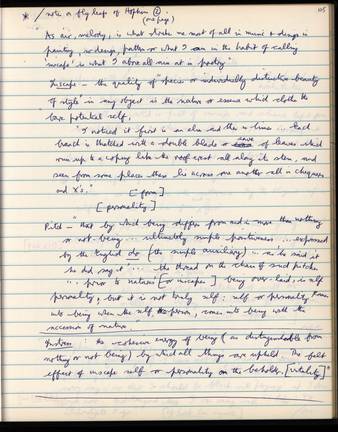 105
* / note on fly leaf of Hopkins ②.
(one page)
"As air, melody, is what strikes me most of all in music & design in
painting, so design, pattern or what I am in the habit of calling
inscape is what I above all aim at in poetry"
Inscape – the quality of "species or individually distinctive beauty
of style" in any object is the nature or essence which clothes the
bare potential self.
"I noticed it first in an elm and then in limes ... Each
branch is thatched with a double blade or eave of leaves which
run up to a coping like the roof crest all along its stem, and
seen from some places these lie across one another all in chequers
and X's."
[form]
[personality]
Pitch – "that by which being differs from and is more than nothing
or not-being ... ultimately simple positiveness ... expressed
by the English do (the simple auxiliary) ... as he said it
he did say it ... the thread or the chain of such pitches
... prior to nature [or inscape] being over-laid, is self
personality, but it is not truly self: self or personality
into being when the self, the person, comes into being with the
accession of nature.
Instress: the cohesive energy of being (as distinguishable from
nothing or not being) by which all things are upheld. The felt
effect of inscape self or personality on the beholder. [vitality]